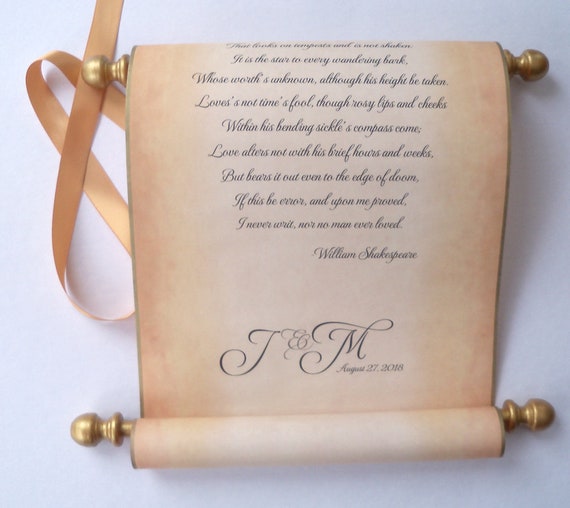 That looks on tempests and is not shaken.
It is the star to every wandering bark,
Whose worth's unknown, although his height be taken.
Loves's not time's fool, though rosy lips and cheeks
Within his bending sickle's compass come;
Love alters not with his brief hours and weeks,
But bears it out even to the edge of doom,
If this be error, and upon me proved,
I never writ, nor no man ever loved.
William Shakespeare
J & M
August 27, 2018